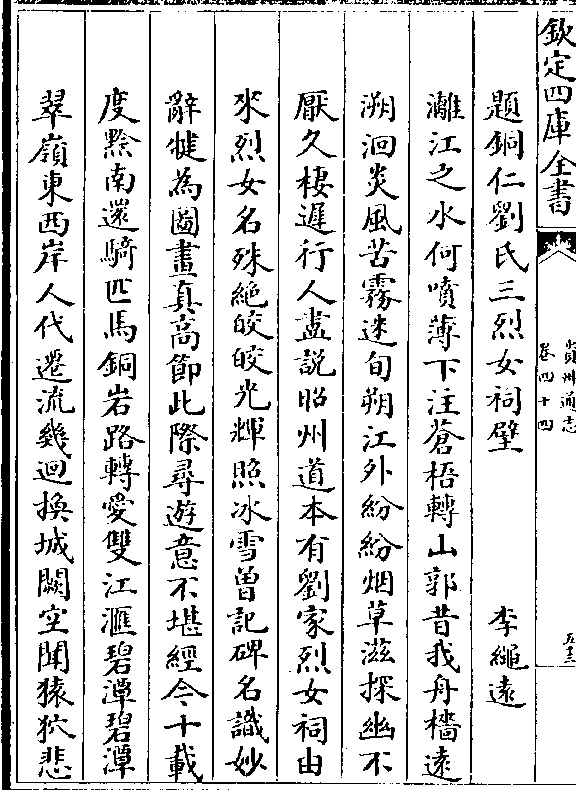 欽定四庫全書
貴州通志
卷四十四
五十三
題銅仁劉氏三烈女祠壁　李繩遠
灕江之水何噴薄下注蒼梧轉山郭昔我舟檣遠
溯洄炎風苦霧迷旬朔江外紛紛烟草滋探幽不
厭久棲遲行人盡説昭州道本有劉家烈女祠由
來烈女名殊絶皎皎光輝照冰雪曽記碑名識妙
辭徙為圖畫真高節此際尋遊意不堪經今十載
度黔南還騎匹馬銅岩路轉愛雙江滙碧潭碧潭
翠嶺東西岸人代遷流幾迴換城闕空聞猿狖悲